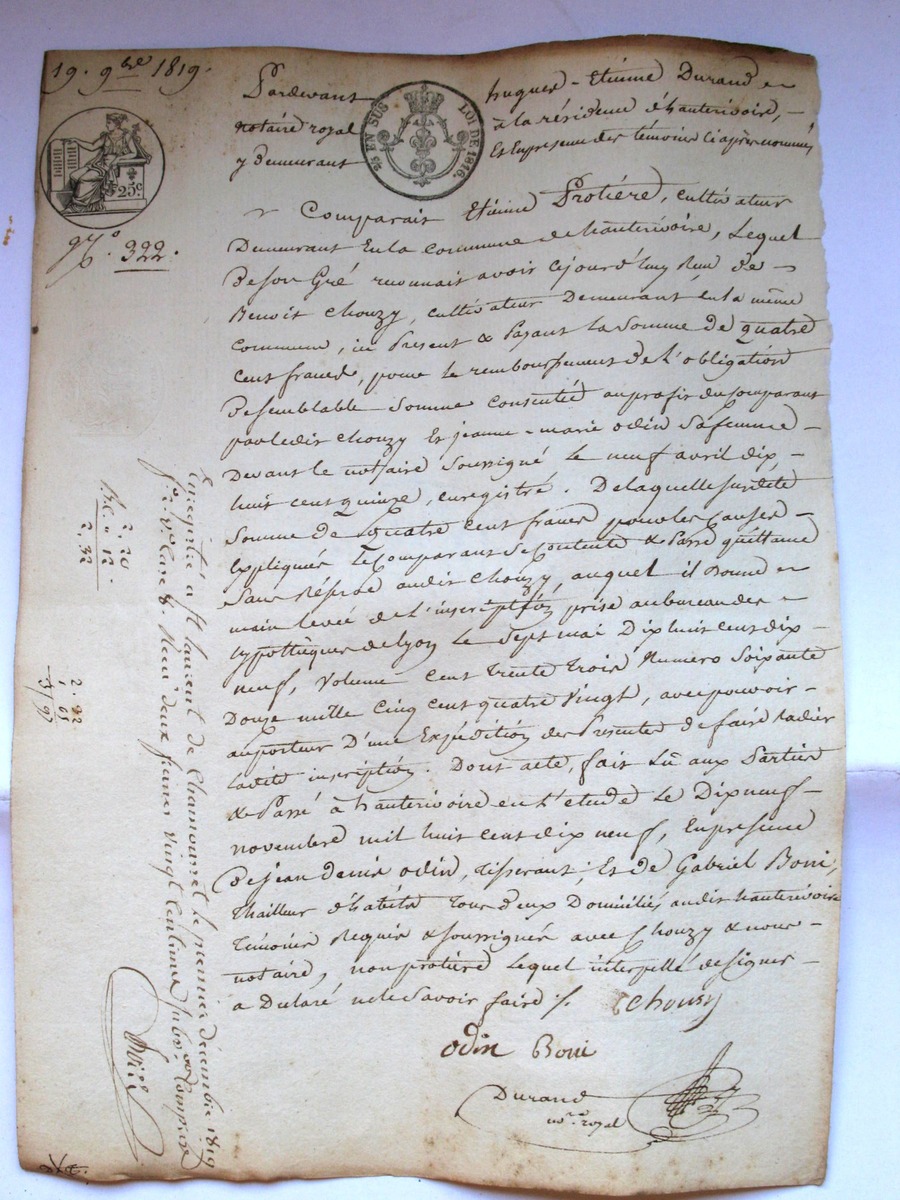 19. 9bre 1819.
25c
N° 322.
25 EN SUS LOI DE 1816.
Pardevant hugues-Etienne Durand
notaire royal à la résidence d'hauterivoire,
y Demeurant Et En presence des témoins ci après nommés
Comparait Etienne Protière, cultivateur
Demeurant En la commune de hauterivoire, Lequel
De son Gré reconnait avoir cejourd'huy Reçu de
Benoit Chouzy, cultivateur Demeurant en la même
commune, ici Present & Payant La Somme De quatre
cent francs, pour le remboursement de l'obligation
De semblable Somme consentie au profit du Comparant
par ledit Chouzy Et jeanne-marie odin sa femme
Devant le notaire soussigné le neuf avril dix
huit cent quinze, enregistré. De laquelle susdite
Somme De quatre cent francs pour les Causes
Expliquées le Comparant se Contente & Passe quittance
Sans Réserve audit Chouzy, auquel il Donne
main levée de l'inscription prise au bureau des
hypothèques de Lyon le Sept mai Dix huit cent dix
neuf, Volume Cent trente trois Numero Soixante
Douze mille cinq cent quatre Vingt, avec pouvoir
au porteur D'une Expédition des Presentes de faire Radier
Ladite inscription. Dont acte, fait Lû aux Parties
& Passé à hauterivoire en L'étude Le Dix neuf
novembre mil huit cent dix neuf, En presence
De jean denis odin, tisserant; Et De Gabriel Boni,
thailleur d'habits tous Deux Domiciliés audit hauterivoire
temoins Requis & soussignés avec Chouzy & nous
notaire, non protière lequel interpellé de signer
a Declaré ne le Savoir faire /.
Chouzy
odin Boni
Durand
no.re royal
Enregistré à St laurent de Chamousset le premier décembre 1819
Reçu deux francs vingt centimes
2. 20
22
2. 92
1